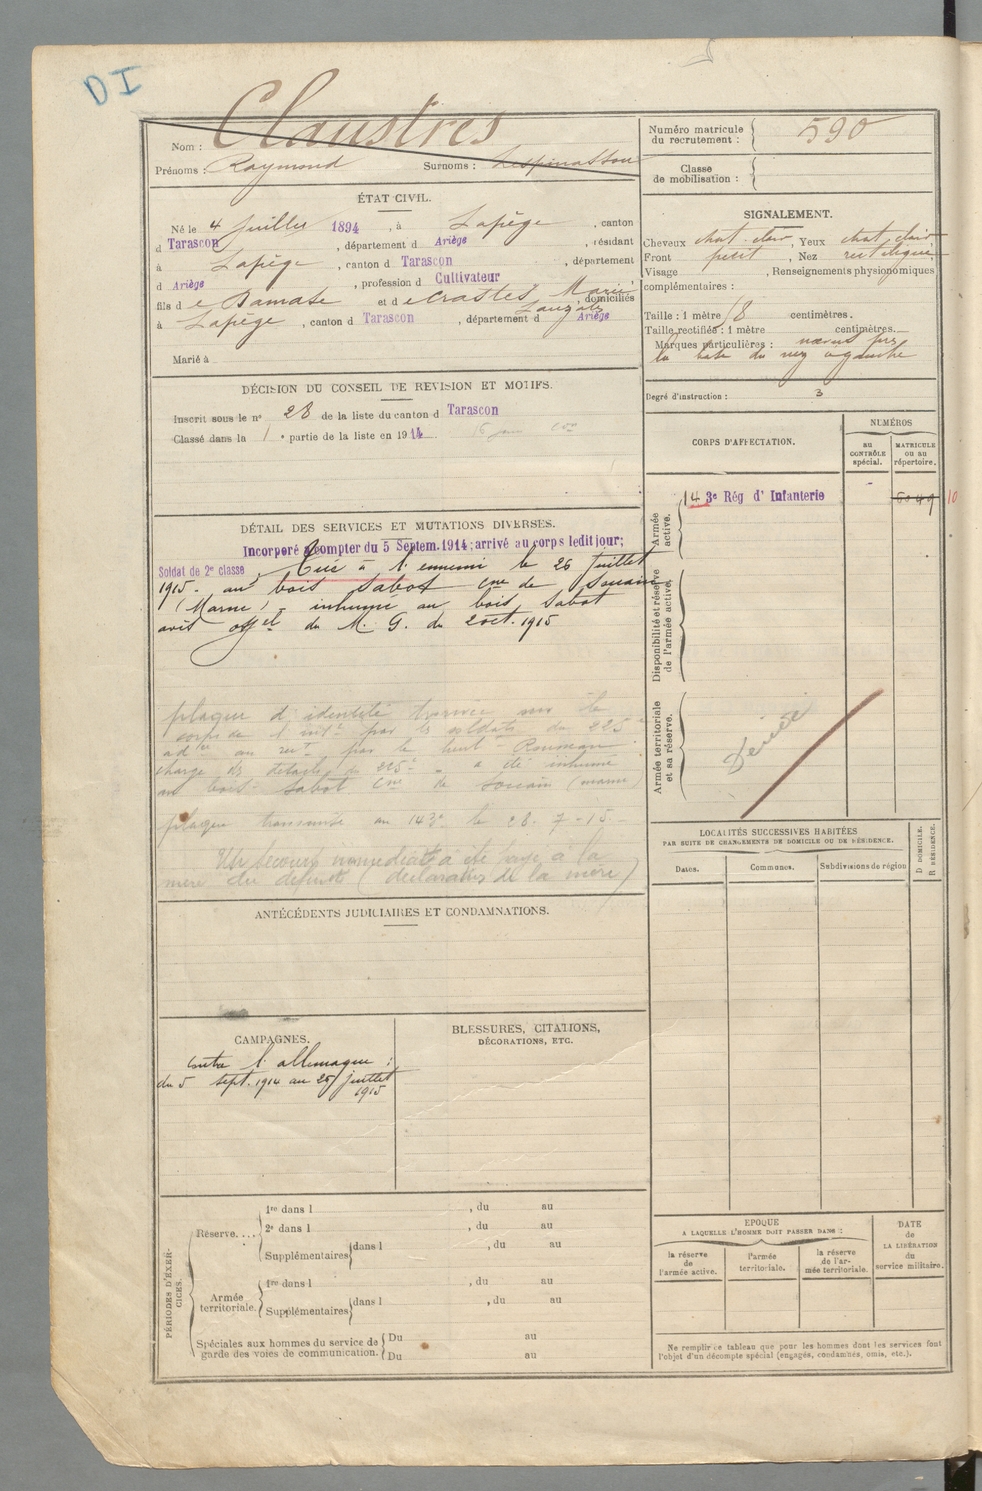 DI
Nom : Claustres
Prénoms : Raymond Surnoms :
Numéro matricule du recrutement : 590
Classe de mobilisation :
ÉTAT CIVIL.
Né le 4 juillet 1894, à Lapège, canton
d Tarascon, département d Ariège, résidant
à Lapège, canton d Tarascon, département
d Ariège, profession d Cultivateur
fils de Damase et de Crastes Marie, domiciliés
à Lapège, canton d Tarascon, département d Ariège
Marié à
SIGNALEMENT.
Cheveux chat. clair, Yeux chat. clair
Front petit, Nez rectiligne
Visage , Renseignements physionomiques
complémentaires :
Taille : 1 mètre 58 centimètres.
Taille rectifiée : 1 mètre centimètres.
Marques particulières : nœvus sur
la base du nez à gauche
Degré d'instruction : 3
DÉCISION DU CONSEIL DE REVISION ET MOTIFS.
Inscrit sous le n° 28 de la liste du canton d Tarascon
Classé dans la 1e partie de la liste en 1914
CORPS D'AFFECTATION.
NUMÉROS
au CONTRÔLE spécial.
MATRICULE ou au répertoire.
Armée active.
143e Rég d' Infanterie 10
Disponibilité et réserve de l'armée active.
Armée territoriale et sa réserve.
DÉTAIL DES SERVICES ET MUTATIONS DIVERSES.
Incorporé à compter du 5 Septem. 1914; arrivé au corps ledit jour;
Soldat de 2e classe, Tué à l'ennemi le 26 juillet
1915 - au bois Sabot Cne de Souain
(Marne) - inhumé au bois Sabot
avis offel du M. G. du 2 oct. 1915
plaque d'identité trouvée sur le
corps de l' par les soldats du 225e
par le lieut Rousseau
chargé des détails du 225e - a été inhumé
au bois Sabot Cne de Souain (Marne)
plaque transmise au 143e le 28-7-15.
Un Secours immédiat a été payé à la
mère du défunt (déclaration de la mère)
LOCALITÉS SUCCESSIVES HABITÉES
PAR SUITE DE CHANGEMENTS DE DOMICILE OU DE RÉSIDENCE.
Dates. Communes. Subdivisions de région
D DOMICILE. R RÉSIDENCE.
ANTÉCÉDENTS JUDICIAIRES ET CONDAMNATIONS.
CAMPAGNES.
contre l'allemagne :
du 5 sept. 1914 au 26 juillet
1915
BLESSURES, CITATIONS,
DÉCORATIONS, ETC.
PÉRIODES D'EXERCICES.
Réserve....
1re dans l , du au
2e dans l , du au
Supplémentaires dans l , du au
Armée territoriale.
1re dans l , du au
Supplémentaires dans l , du au
Spéciales aux hommes du service de
garde des voies de communication.
Du au
Du au
EPOQUE
A LAQUELLE L'HOMME DOIT PASSER DANS :
la réserve de l'armée active.
l'armée territoriale.
la réserve de l'armée territoriale.
DATE de LA LIBÉRATION du service militaire.
Ne remplir ce tableau que pour les hommes dont les services font
l'objet d'un décompte spécial (engagés, condamnés, omis, etc.).